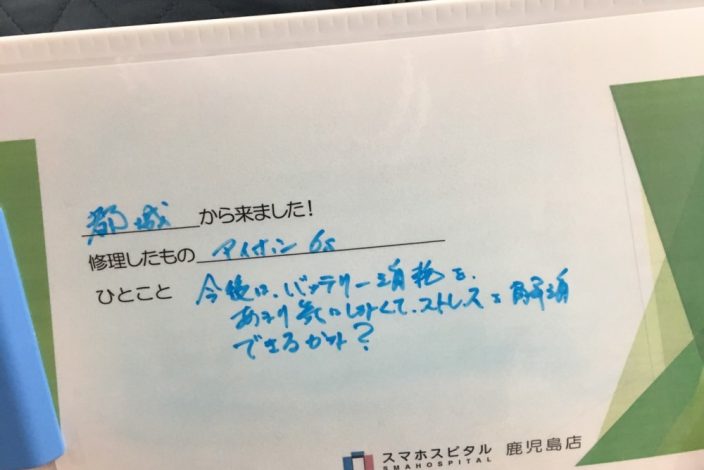 都城から来ました!
修理したもの アイホン 6s
ひとこと 今後は、バッテリー消耗を、
あまり気にしなくて、ストレスを解消
できるかな?
スマホスピタル 鹿児島店
SMAHOSPITAL